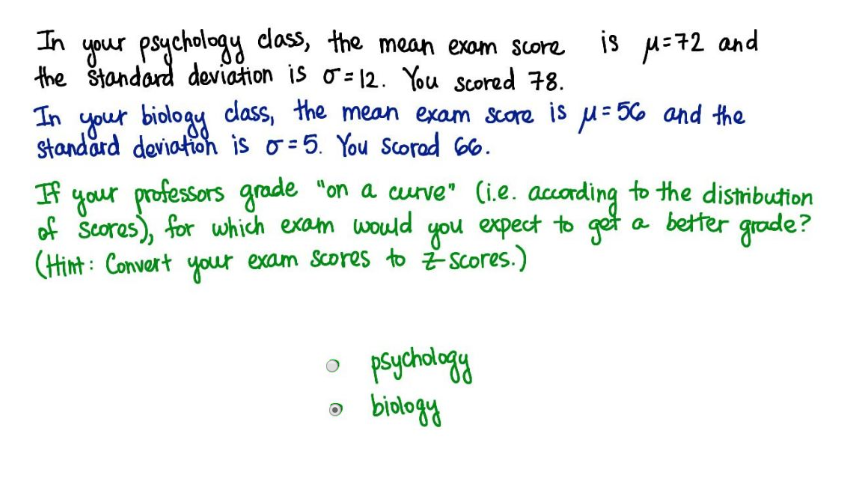 In your psychology class, the mean exam score is μ=72 and
the standard deviation is σ=12. You scored 78.
In your biology class, the mean exam score is μ=56 and the
standard deviation is σ=5. You scored 66.
If your professors grade "on a curve" (i.e. according to the distribution
of scores), for which exam would you expect to get a better grade?
(Hint: Convert your exam scores to Z-scores.)
psychology
biology